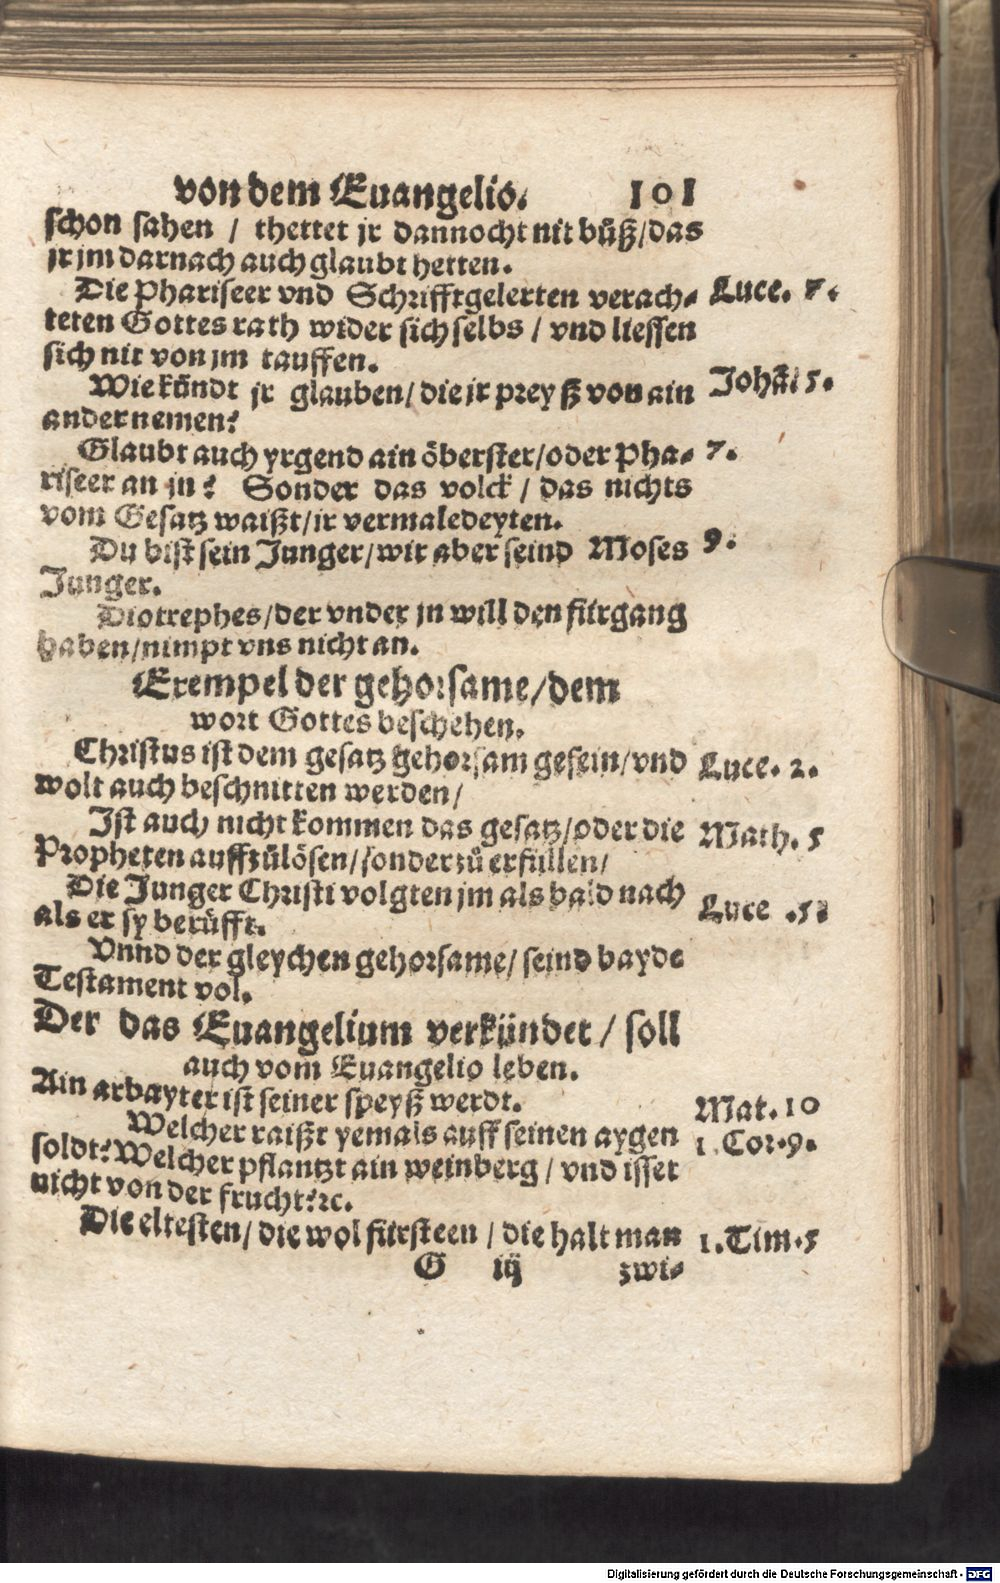 von dem Euangelio. 101
schon sahen / thettet jr dannocht nit bůß/das
jr jm darnach auch glaubt hetten.
Die Phariseer vnd Schrifftgelerten verach- Luce. 7.
teten Gottes rath wider sich selbs / vnd liessen
sich nit von jm tauffen.
Wie kündt jr glauben/die jr preyß von ain Johā. 5.
ander nemen?
Glaubt auch yrgend ain öberster/oder Pha- 7.
riseer an jn? Sonder das volck / das nichts
vom Gesatz waißt/ir vermaledeyten.
Du bist sein Junger/wir aber seind Moses 9.
Junger.
Diotrephes/der vnder jn will den fürgang
haben/nimpt vns nicht an.
Exempel der gehorsame/dem
wort Gottes beschehen.
Christus ist dem gesatz gehorsam gesein/vnd Luce. 2.
wolt auch beschnitten werden/
Ist auch nicht kommen das gesatz/oder die Math. 5
Propheten auffzůlösen/sonder zů erfüllen/
Die Junger Christi volgten jm als bald nach
als er sy berüfft. Luce .5.
Vnnd der gleychen gehorsame/ seind bayde
Testament vol.
Der das Euangelium verkündet / soll
auch vom Euangelio leben.
Ain arbayter ist seiner speyß werdt. Mat. 10
Welcher raißt yemals auff seinen aygen 1. Cor. 9.
soldt? Welcher pflantzt ain weinberg / vnd isset
nicht von der frucht? ꝛc.
Die eltesten/ die wol fürsteen / die halt man 1. Tim. 5
G iij zwi-
Digitalisierung gefördert durch die Deutsche Forschungsgemeinschaft - DFG